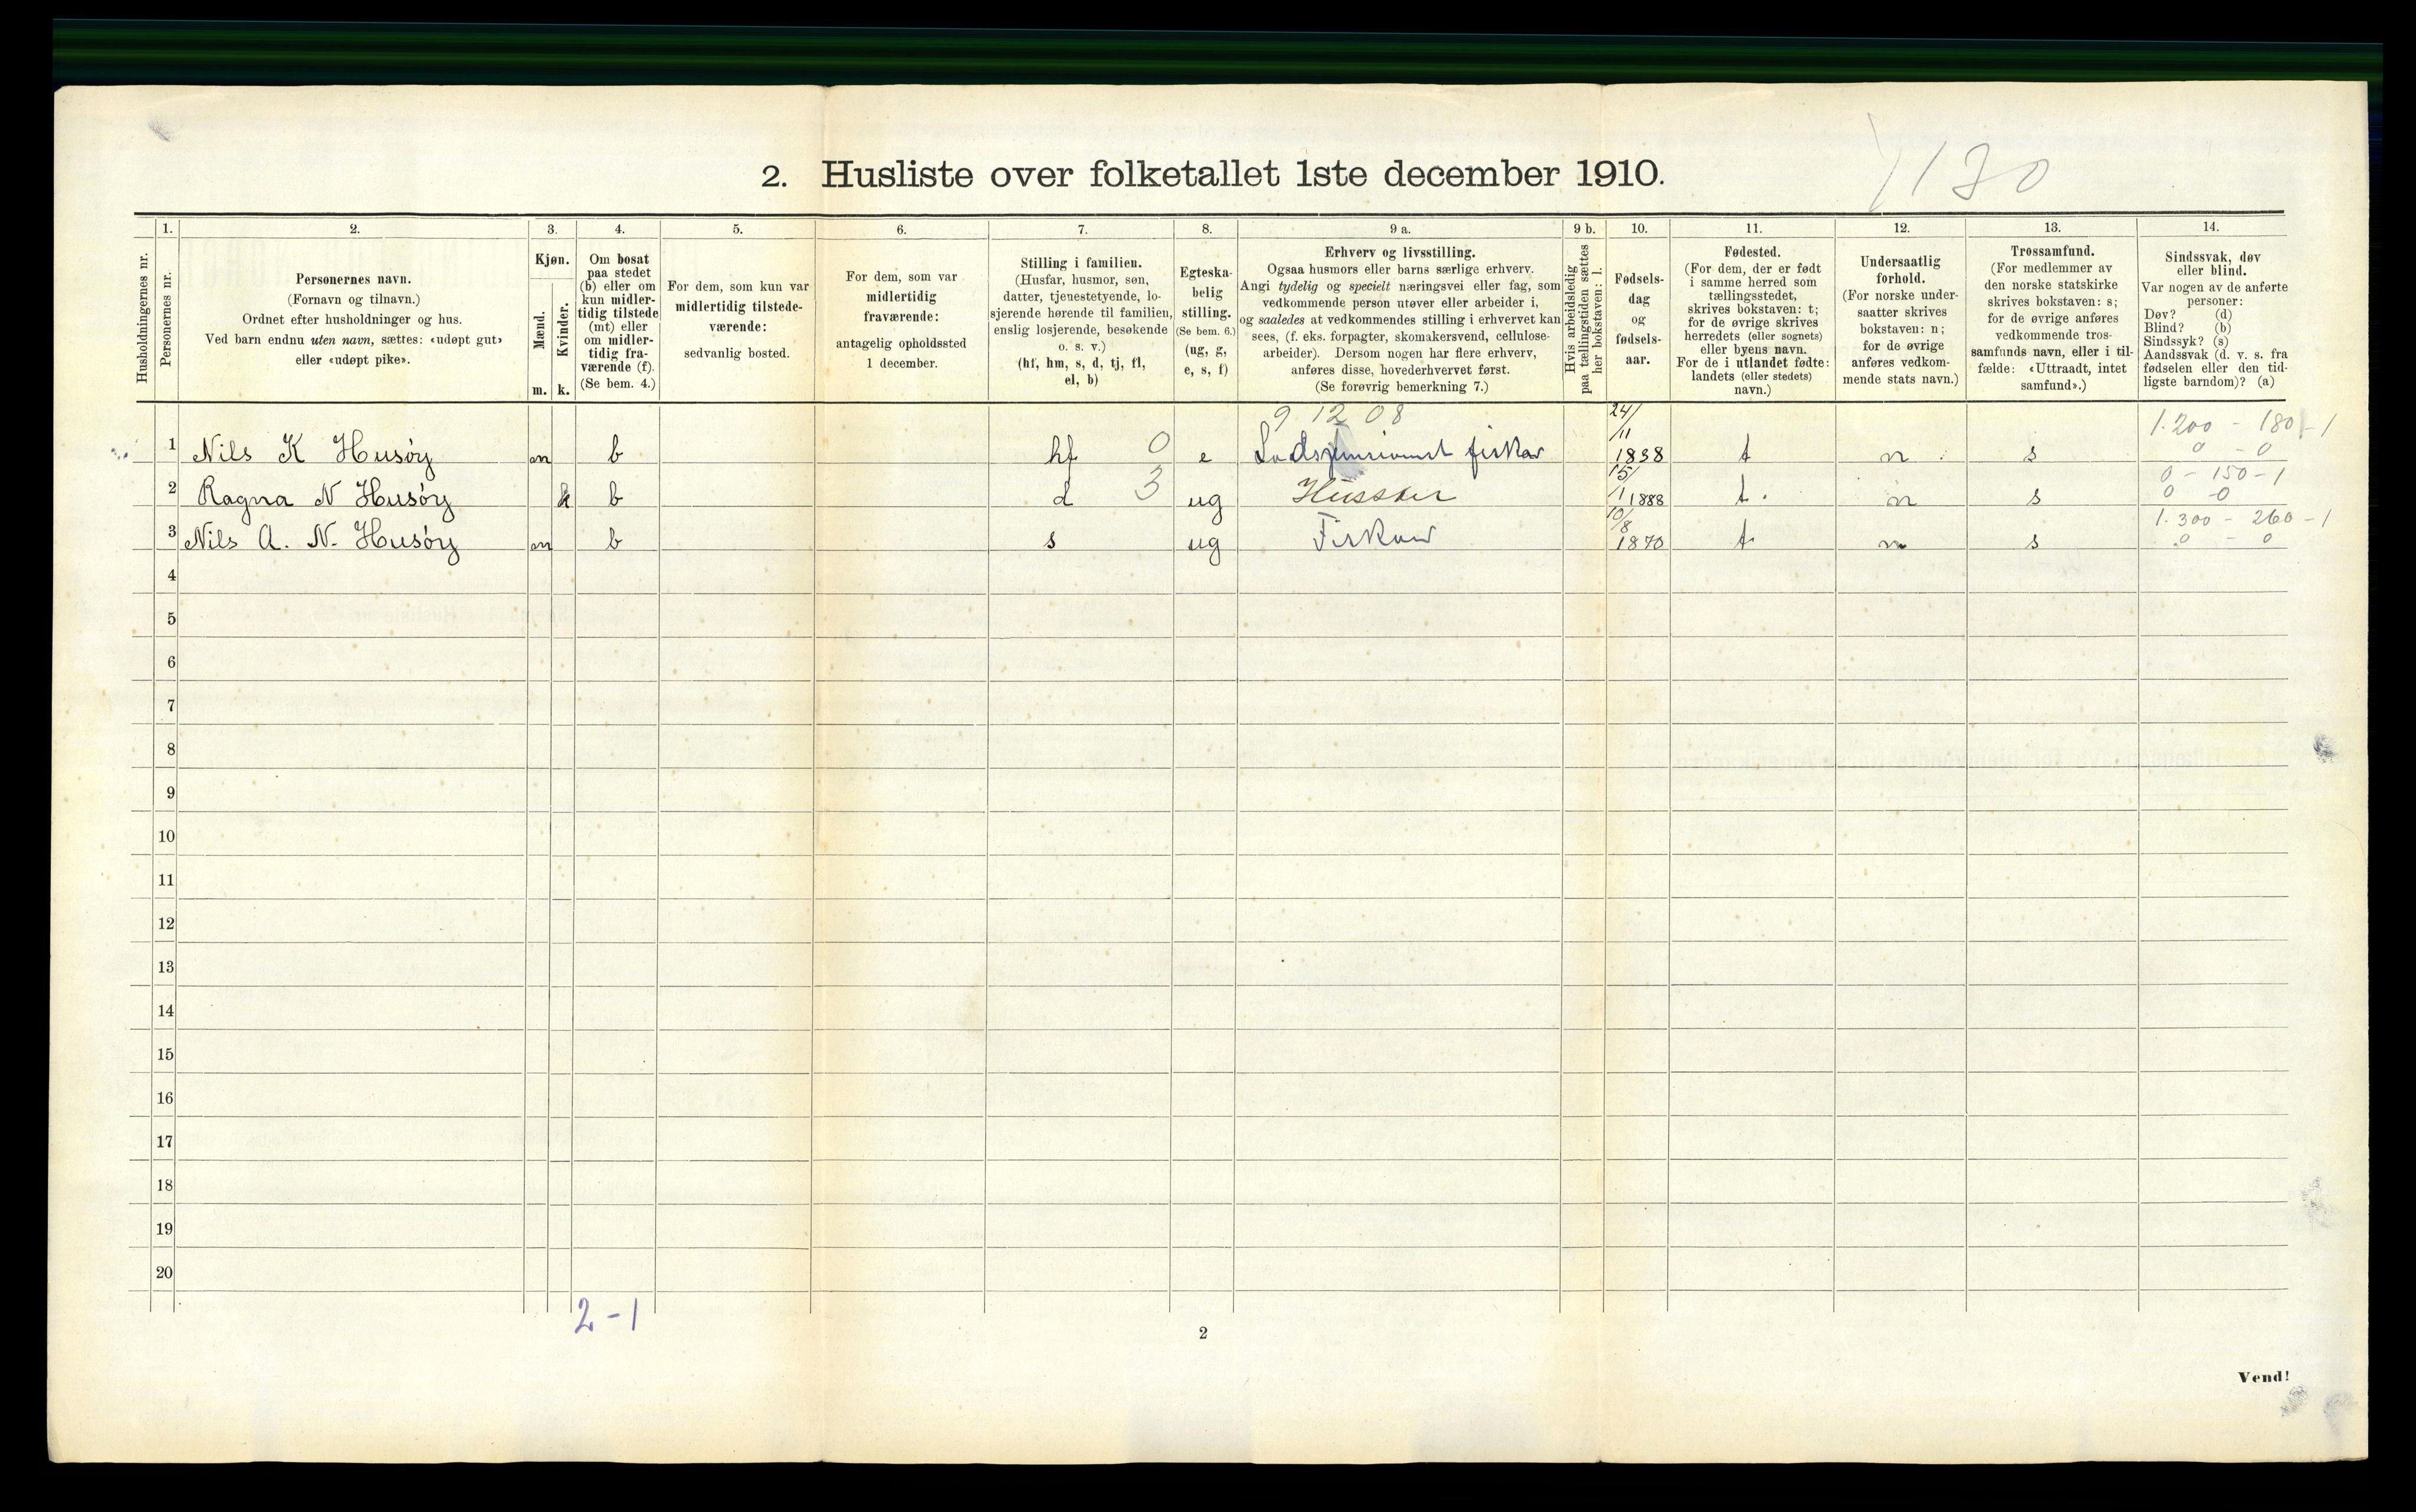 2. Husliste over folketallet 1ste december 1910.
130
Husholdningernes nr.
1.
Personernes nr.
2.
Personernes navn.
(Fornavn og tilnavn.)
Ordnet efter husholdninger og hus.
Ved barn endnu uten navn, sættes: «udøpt gut»
eller «udøpt pike».
3.
Kjøn.
Mænd.
Kvinder.
m. k.
4.
Om bosat
paa stedet
(b) eller om
kun midler-
tidig tilstede
(mt) eller
om midler-
tidig fra-
værende (f).
(Se bem. 4.)
5.
For dem, som kun var
midlertidig tilstede-
værende:
sedvanlig bosted.
6.
For dem, som var
midlertidig
fraværende:
antagelig opholdssted
1 december.
7.
Stilling i familien.
(Husfar, husmor, søn,
datter, tjenestetyende, lo-
sjerende hørende til familien,
enslig losjerende, besøkende
o. s. v.)
(hf, hm, s, d, tj, fl,
el, b)
8.
Egteska-
belig
stilling.
(Se bem. 6.)
(ug, g,
e, s, f)
9 a.
Erhverv og livsstilling.
Ogsaa husmors eller barns særlige erhverv.
Angi tydelig og specielt næringsvei eller fag, som
vedkommende person utøver eller arbeider i,
og saaledes at vedkommendes stilling i erhvervet kan
sees, (f. eks. forpagter, skomakersvend, cellulose-
arbeider). Dersom nogen har flere erhverv,
anføres disse, hovederhvervet først.
(Se forøvrig bemerkning 7.)
9 b.
Hvis arbeidsledig
paa tællingstiden sættes
her bokstaven: l.
10.
Fødsels-
dag
og
fødsels-
aar.
11.
Fødested.
(For dem, der er født
i samme herred som
tællingsstedet,
skrives bokstaven: t;
for de øvrige skrives
herredets (eller sognets)
eller byens navn.
For de i utlandet fødte:
landets (eller stedets)
navn.)
12.
Undersaatlig
forhold.
(For norske under-
saatter skrives
bokstaven: n;
for de øvrige
anføres vedkom-
mende stats navn.)
13.
Trossamfund.
(For medlemmer av
den norske statskirke
skrives bokstaven: s;
for de øvrige anføres
vedkommende tros-
samfunds navn, eller i til-
fælde: «Uttraadt, intet
samfund».)
14.
Sindssvak, døv
eller blind.
Var nogen av de anførte
personer:
Døv? (d)
Blind? (b)
Sindssyk? (s)
Aandssvak (d. v. s. fra
fødselen eller den tid-
ligste barndom)? (a)
9 12 08 24/11 1.200 - 180 - 1
1 Nils K Husöy m b hf 0 e Lodspensionist fisker 1838 t n s 0 - 0
15/1 0 - 150 - 1
2 Ragna N Husöy k b d 3 ug Husster 1888 t. n s 0 - 0
10/8 1.300 - 260 - 1
3 Nils A. N. Husöy m b s ug Fisker 1870 t n s 0 - 0
4
5
6
7
8
9
10
11
12
13
14
15
16
17
18
19
20
2-1
2
Vend!